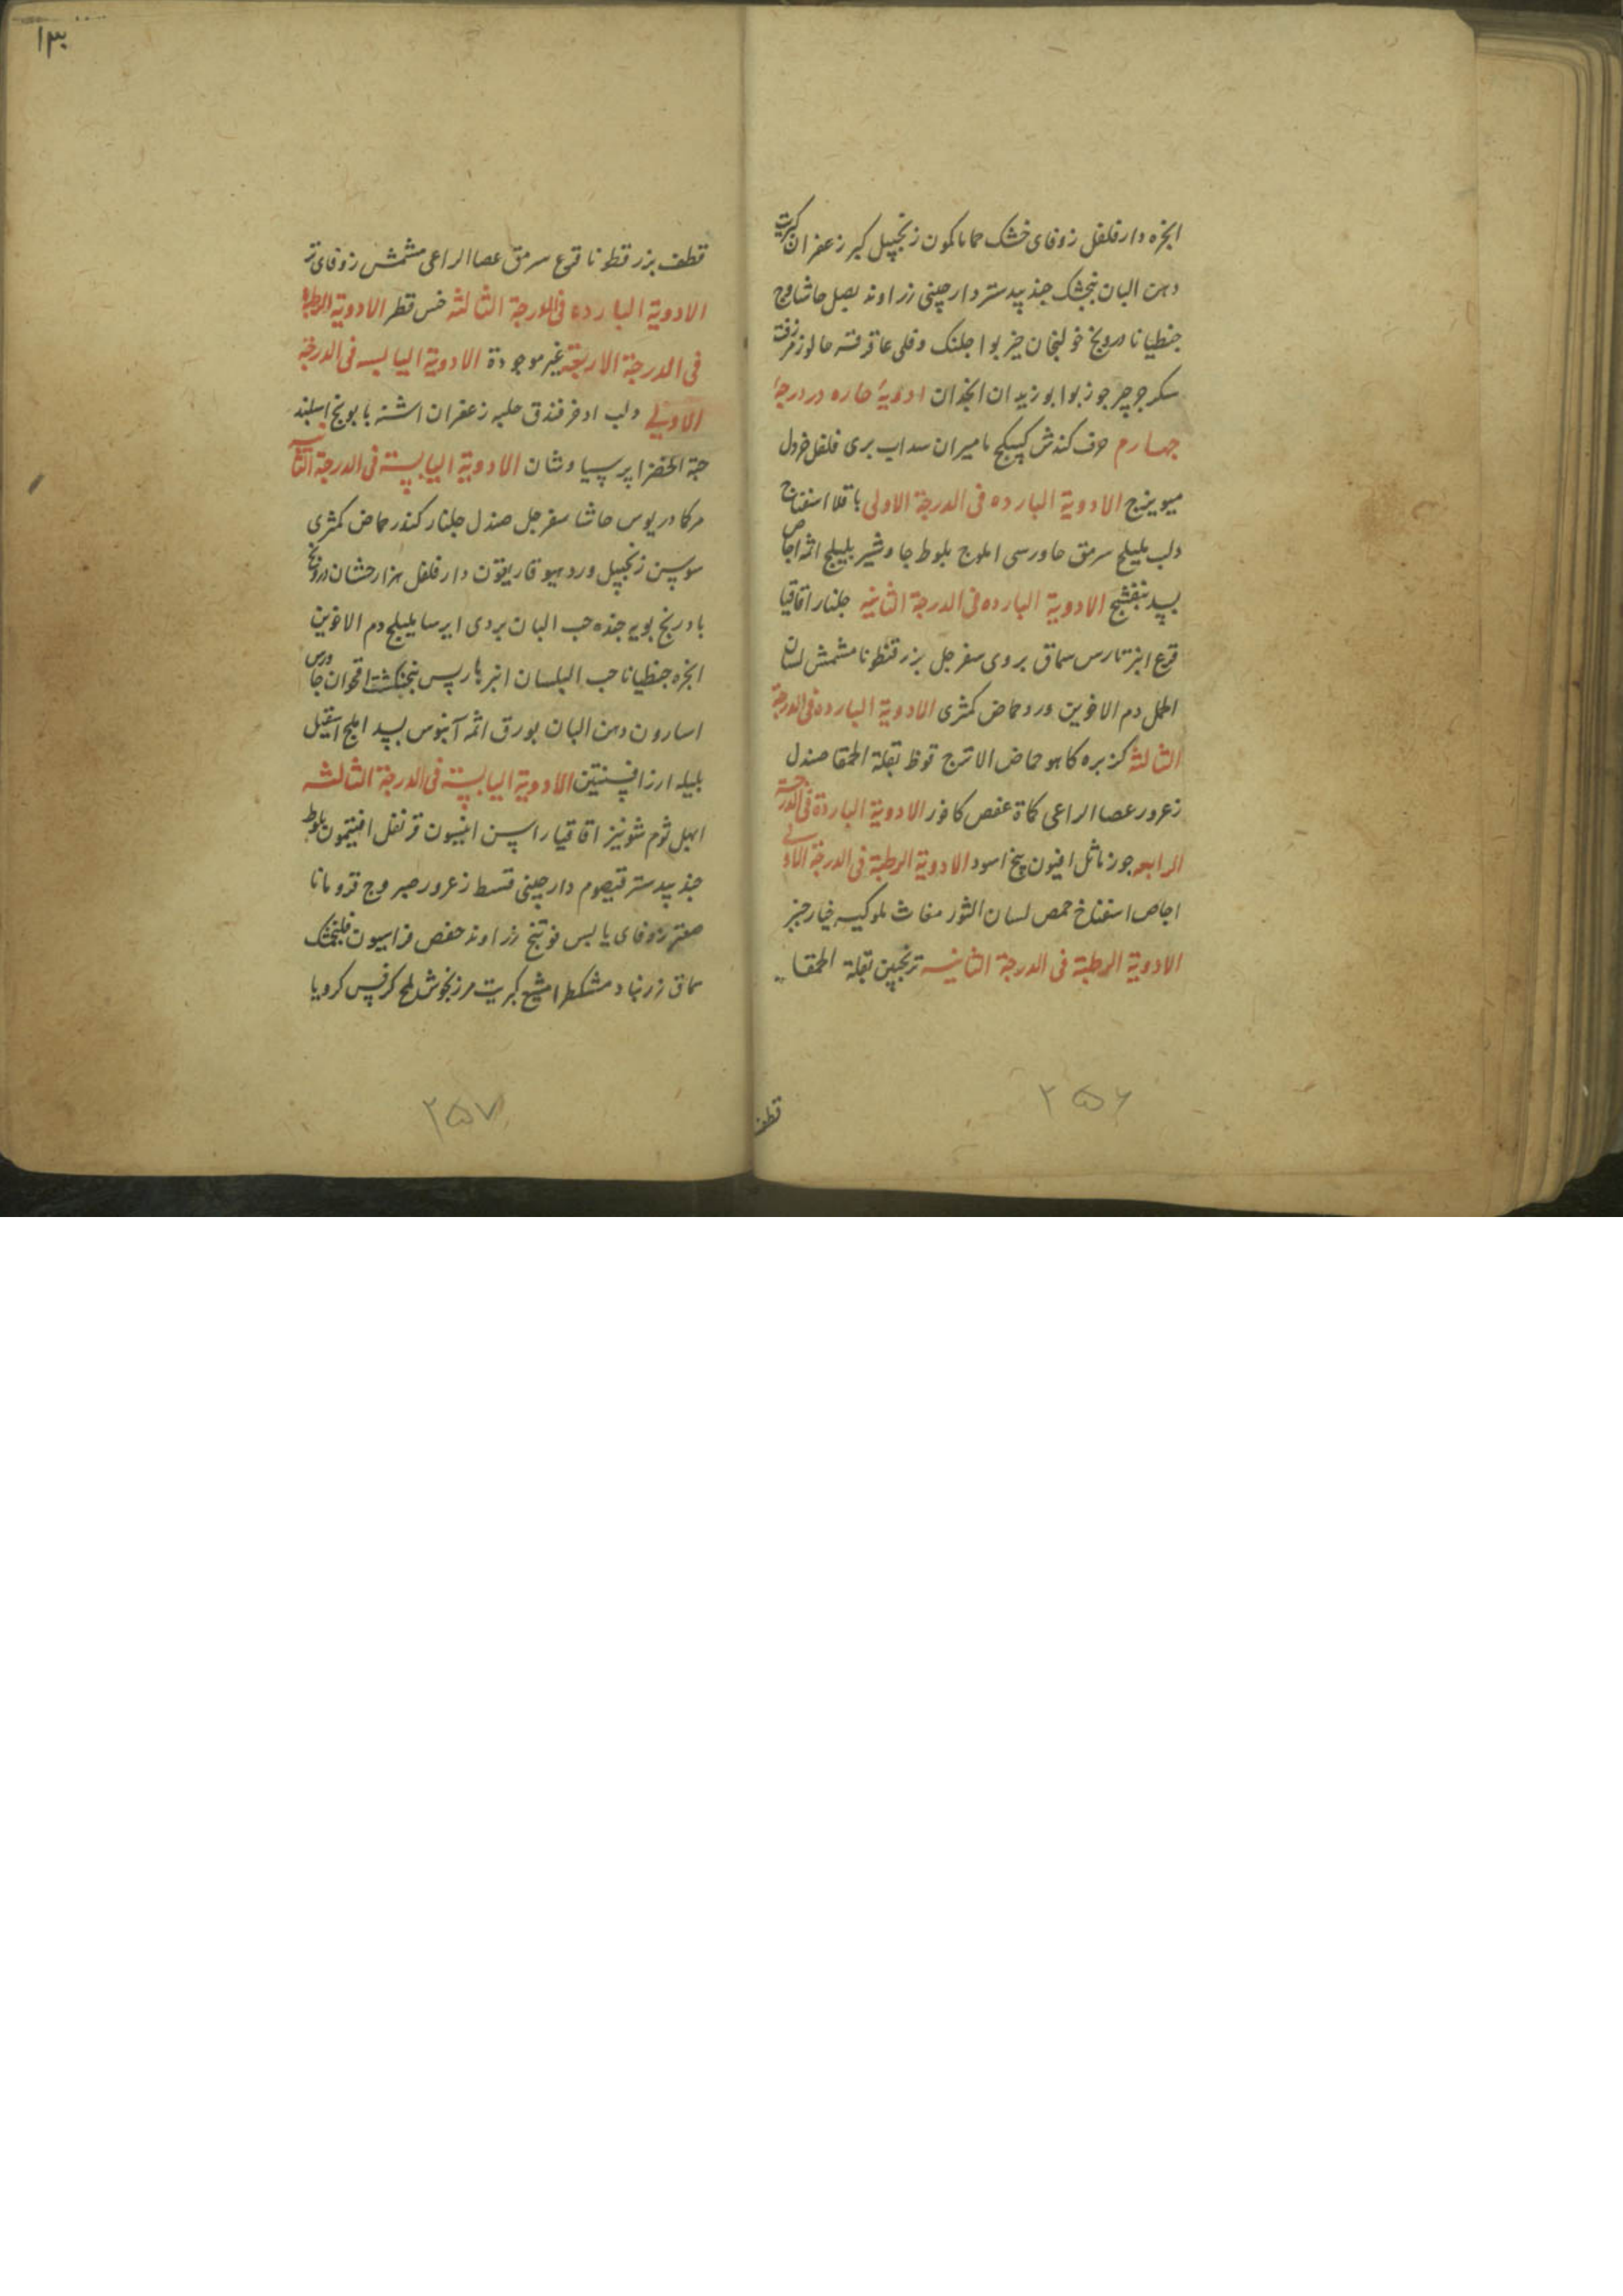 ابخره دار فلفل زوفای خشک حماما کمون زنجبیل کبر زعفران کبریت
دهن البان بنجشک جند بیدستر دارچینی زراوند بصل حاشا وج
جنطیانا درونج خولنجان خیربوا وقلی
سکر جوز بوا بوزیدان انجدان ادویهٔ حاره در درجهٔ
چهارم حرف کندش کبیکج مامیران سداب بری فلفل خردل
میویزج الادویة البارده فی الدرجة الاولی باقلا اسفناخ
دلب بلیلج سرمق جاورسی املج بلوط جاوشیر بلیلج اثمد اجاص
بسد بنفشج الادویة البارده فی الدرجة الثانیه جلنار اقاقیا
قرع سماق بردی سفرجل بزرقطونا مشمش لسان
الحمل دم الاخوین ورد حماض کمثری الادویة البارده فی الدرجة
الثالثة کزبره کاهو حماض الاترج بقلة الحمقا صندل
زعرور عصا الراعی عفص کافور الادویة الباردة فی الدرجة
الرابعه جوز ماثل افیون بنج اسود الادویة الرطبة فی الدرجة الاولی
اجاص اسفناخ حمص لسان الثور مغاث ملوکیه خیار خبز
الادویة الرطبة فی الدرجة الثانیه ترنجبین بقلة الحمقا
قطف
۲۵۶
۱۳۰
قطف بزرقطونا قرع سرمق عصا الراعی مشمش زوفای تر
الادویة البارده فی الدرجة الثالثة خس قطر الادویة الرطبه
فی الدرجة الاربعة غیر موجودة الادویة الیابسه فی الدرجة
الاولی دلب ادخر فندق حلبه زعفران اشنه بابونج
حبة الخضرا پرسیاوشان الادویة الیابسة فی الدرجة الثانیة
حاشا سفرجل صندل جلنار کندر حماض کمثری
سوسن زنجبیل ورد غاریقون دار فلفل هزارجشان درونج
بادرنجبویه حب البان بردی ایرسا بلیلج دم الاخوین
ابخره جنطیانا حب البلسان انبرباریس بنجنکشت اقحوان جاورس
اسارون دهن البان بورق اثمد آبنوس بسد املج اسقیل
بلیله ارز افسنتین الادویة الیابسة فی الدرجة الثالثه
ابهل ثوم شونیز اقاقیا راسن انیسون قرنفل افتیمون بلوط
جند بیدستر قیصوم دارچینی قسط زعرور صبر وج قردمانا
صعتر زوفای یابس فوتنج زراوند عفص فراسیون فلنجمشک
سماق زرنباد مشکطرامشیع کبریت مرزنجوش ملح کرفس کرویا
۲۵۷